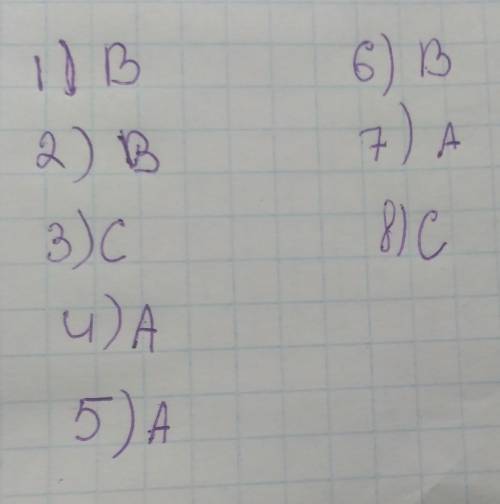 1) B
2) B
3) C
4) A
5) A
6) B
7) A
8) C